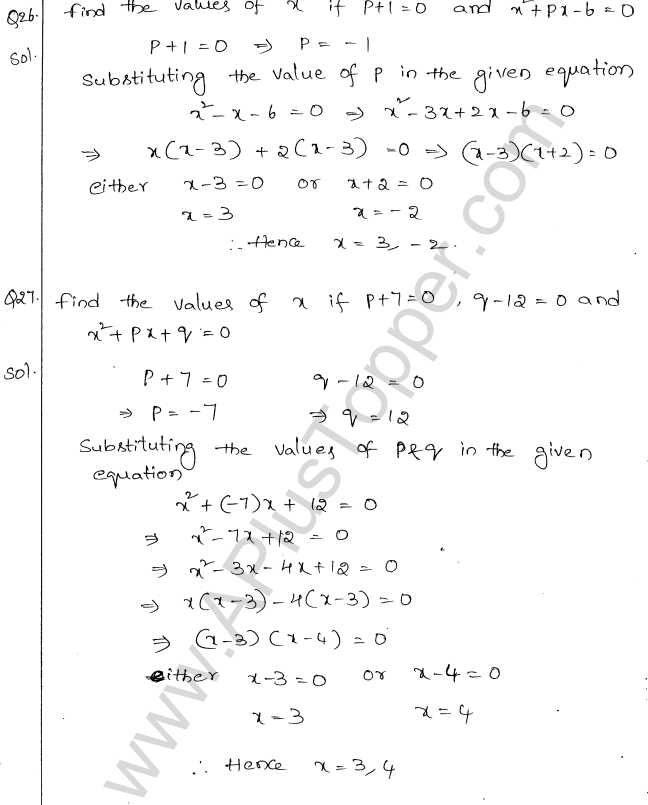 Q26. find the values of x if P+1=0 and x²+Px-6=0
Sol. P+1=0 ⇒ P=-1
Substituting the value of P in the given equation
x²-x-6=0 ⇒ x²-3x+2x-6=0
⇒ x(x-3)+2(x-3)=0 ⇒ (x-3)(x+2)=0
either x-3=0 or x+2=0
x=3 x=-2
∴ Hence x=3,-2.
Q27. find the values of x if P+7=0, q-12=0 and
x²+Px+q=0
Sol. P+7=0 q-12=0
⇒ P=-7 ⇒ q=12
Substituting the values of P&q in the given
equation
x²+(-7)x+12=0
⇒ x²-7x+12=0
⇒ x²-3x-4x+12=0
⇒ x(x-3)-4(x-3)=0
⇒ (x-3)(x-4)=0
either x-3=0 or x-4=0
x=3 x=4
∴ Hence x=3,4
www.APlusTopper.com